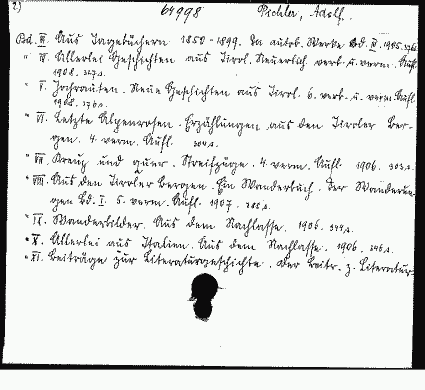 2) 64998 Pichler, Adolf.
Bd. III. Aus Tagebüchern 1850-1899. In autob. Werke Bd. III. 1905.
" IV. Allerlei Geschichten aus Tirol. Neuerlich verb. u. verm. Aufl.
1908. 327 s.
" V. Jochrauten. Neue Geschichten aus Tirol. 6. verb. u. verm. Aufl.
1908. 376 s.
" VI. Letzte Alpenrosen. Erzählungen aus den Tiroler Ber-
gen. 4. verm. Aufl. 304 s.
" VII. Kreuz und quer. Streifzüge. 4. verm. Aufl. 1906. 303 s.
" VIII. Aus den Tiroler Bergen. Ein Wanderbuch. Der Wanderun-
gen Bd. I. 5. verm. Aufl. 1907. 286 s.
" IX. Wanderbilder. Aus dem Nachlasse. 1906. 344 s.
" X. Allerlei aus Italien. Aus dem Nachlasse. 1906. 346 s.
" XI. Beiträge zur Literaturgeschichte. Der Beitr. z. Literatur-